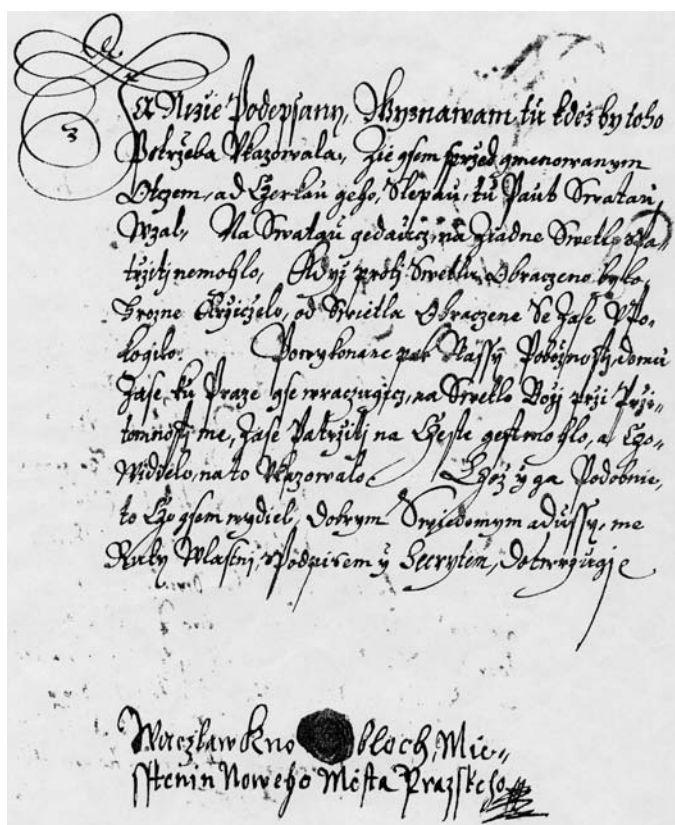 Ja Nizie Podepsany, Wyznawam tu kdež by toho
Potrzeba Ukazowala, Zie gsem przed gmenowanym
Otczem, od Czerkau geho, Slepau, tu Paut Swatau
Wzal, Na Swatau geducz, na Ziadne Swetlo Pa-
trzitj nemohlo, Kdyz protj Swetlu Obraczeno bylo,
Hrozne Krziczelo, od Swietla Obraczene Se Zase Upo-
kogilo. Powykonane pak Nassy Pobożnostj, domu
Zase ku Praze gse wraczugicz, na Swetlo Bozj przi Przi-
tomnostj me, Zase Patrzitj na Czeste gest mohlo, a Czo
Widielo, na to Ukazowalo. Czož y ga Podobnie,
to Czo gsem wydiel, Dobrym Swiedomym a dussy, me
Ruky Wlastnj, Podpisem y Secrytem, Dotwrzugje
Waczlaw Knobloch, Mie-
sstenin Noweho Města Prazskeho